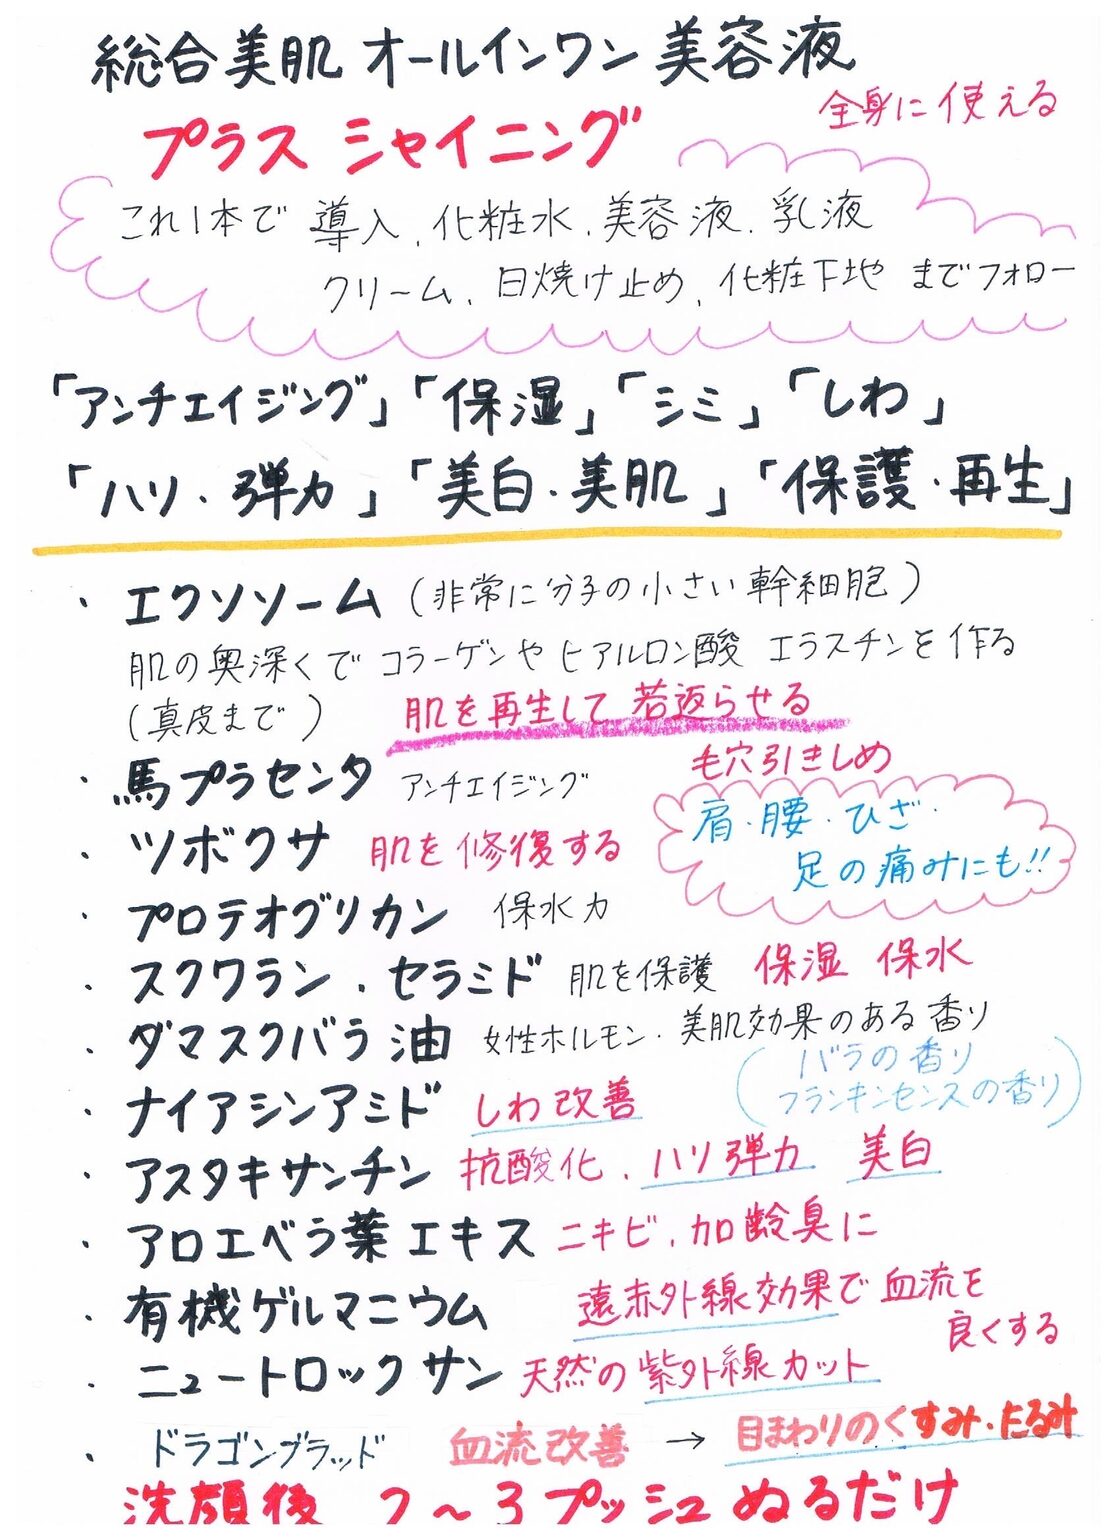 総合美肌 オールインワン 美容液
全身に使える
プラス シャイニング
これ1本で 導入、化粧水、美容液、乳液
クリーム、日焼け止め、化粧下地 までフォロー
「アンチエイジング」「保湿」「シミ」「しわ」
「ハリ・弾力」「美白・美肌」「保護・再生」
・エクソソーム (非常に分子の小さい幹細胞)
肌の奥深くで コラーゲンや ヒアルロン酸 エラスチンを作る
(真皮まで) 肌を再生して 若返らせる
・馬プラセンタ アンチエイジング 毛穴引きしめ
肩・腰・ひざ・
足の痛みにも!!
・ツボクサ 肌を修復する
・プロテオグリカン 保水力
・スクワラン、セラミド 肌を保護 保湿 保水
・ダマスクバラ油 女性ホルモン・美肌効果のある香り
(バラの香り
フランキンセンスの香り)
・ナイアシンアミド しわ改善
・アスタキサンチン 抗酸化、ハリ弾力 美白
・アロエベラ葉エキス ニキビ、加齢臭に
・有機ゲルマニウム 遠赤外線効果で血流を
良くする
・ニュートロックサン 天然の紫外線カット
・ドラゴンブラッド 血流改善 → 目まわりのくすみ・たるみ
洗顔後 2〜3プッシュ ぬるだけ